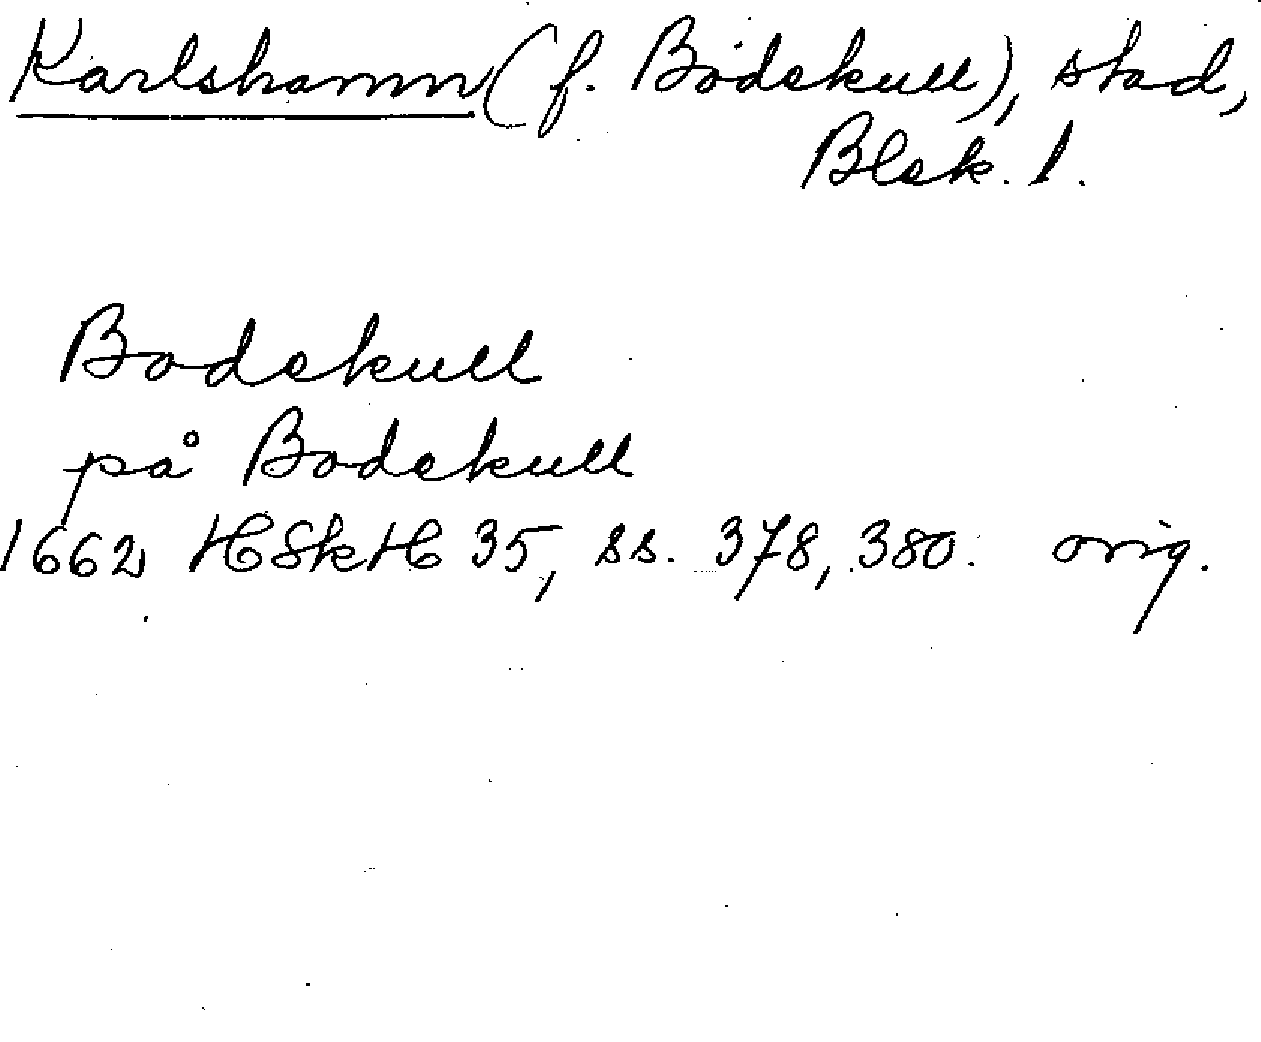 Karlshamn (f. Bodekull), stad,
Blek. l.
Bodekull
på Bodekull
1662 HSkH 35, ss. 378, 380. orig.